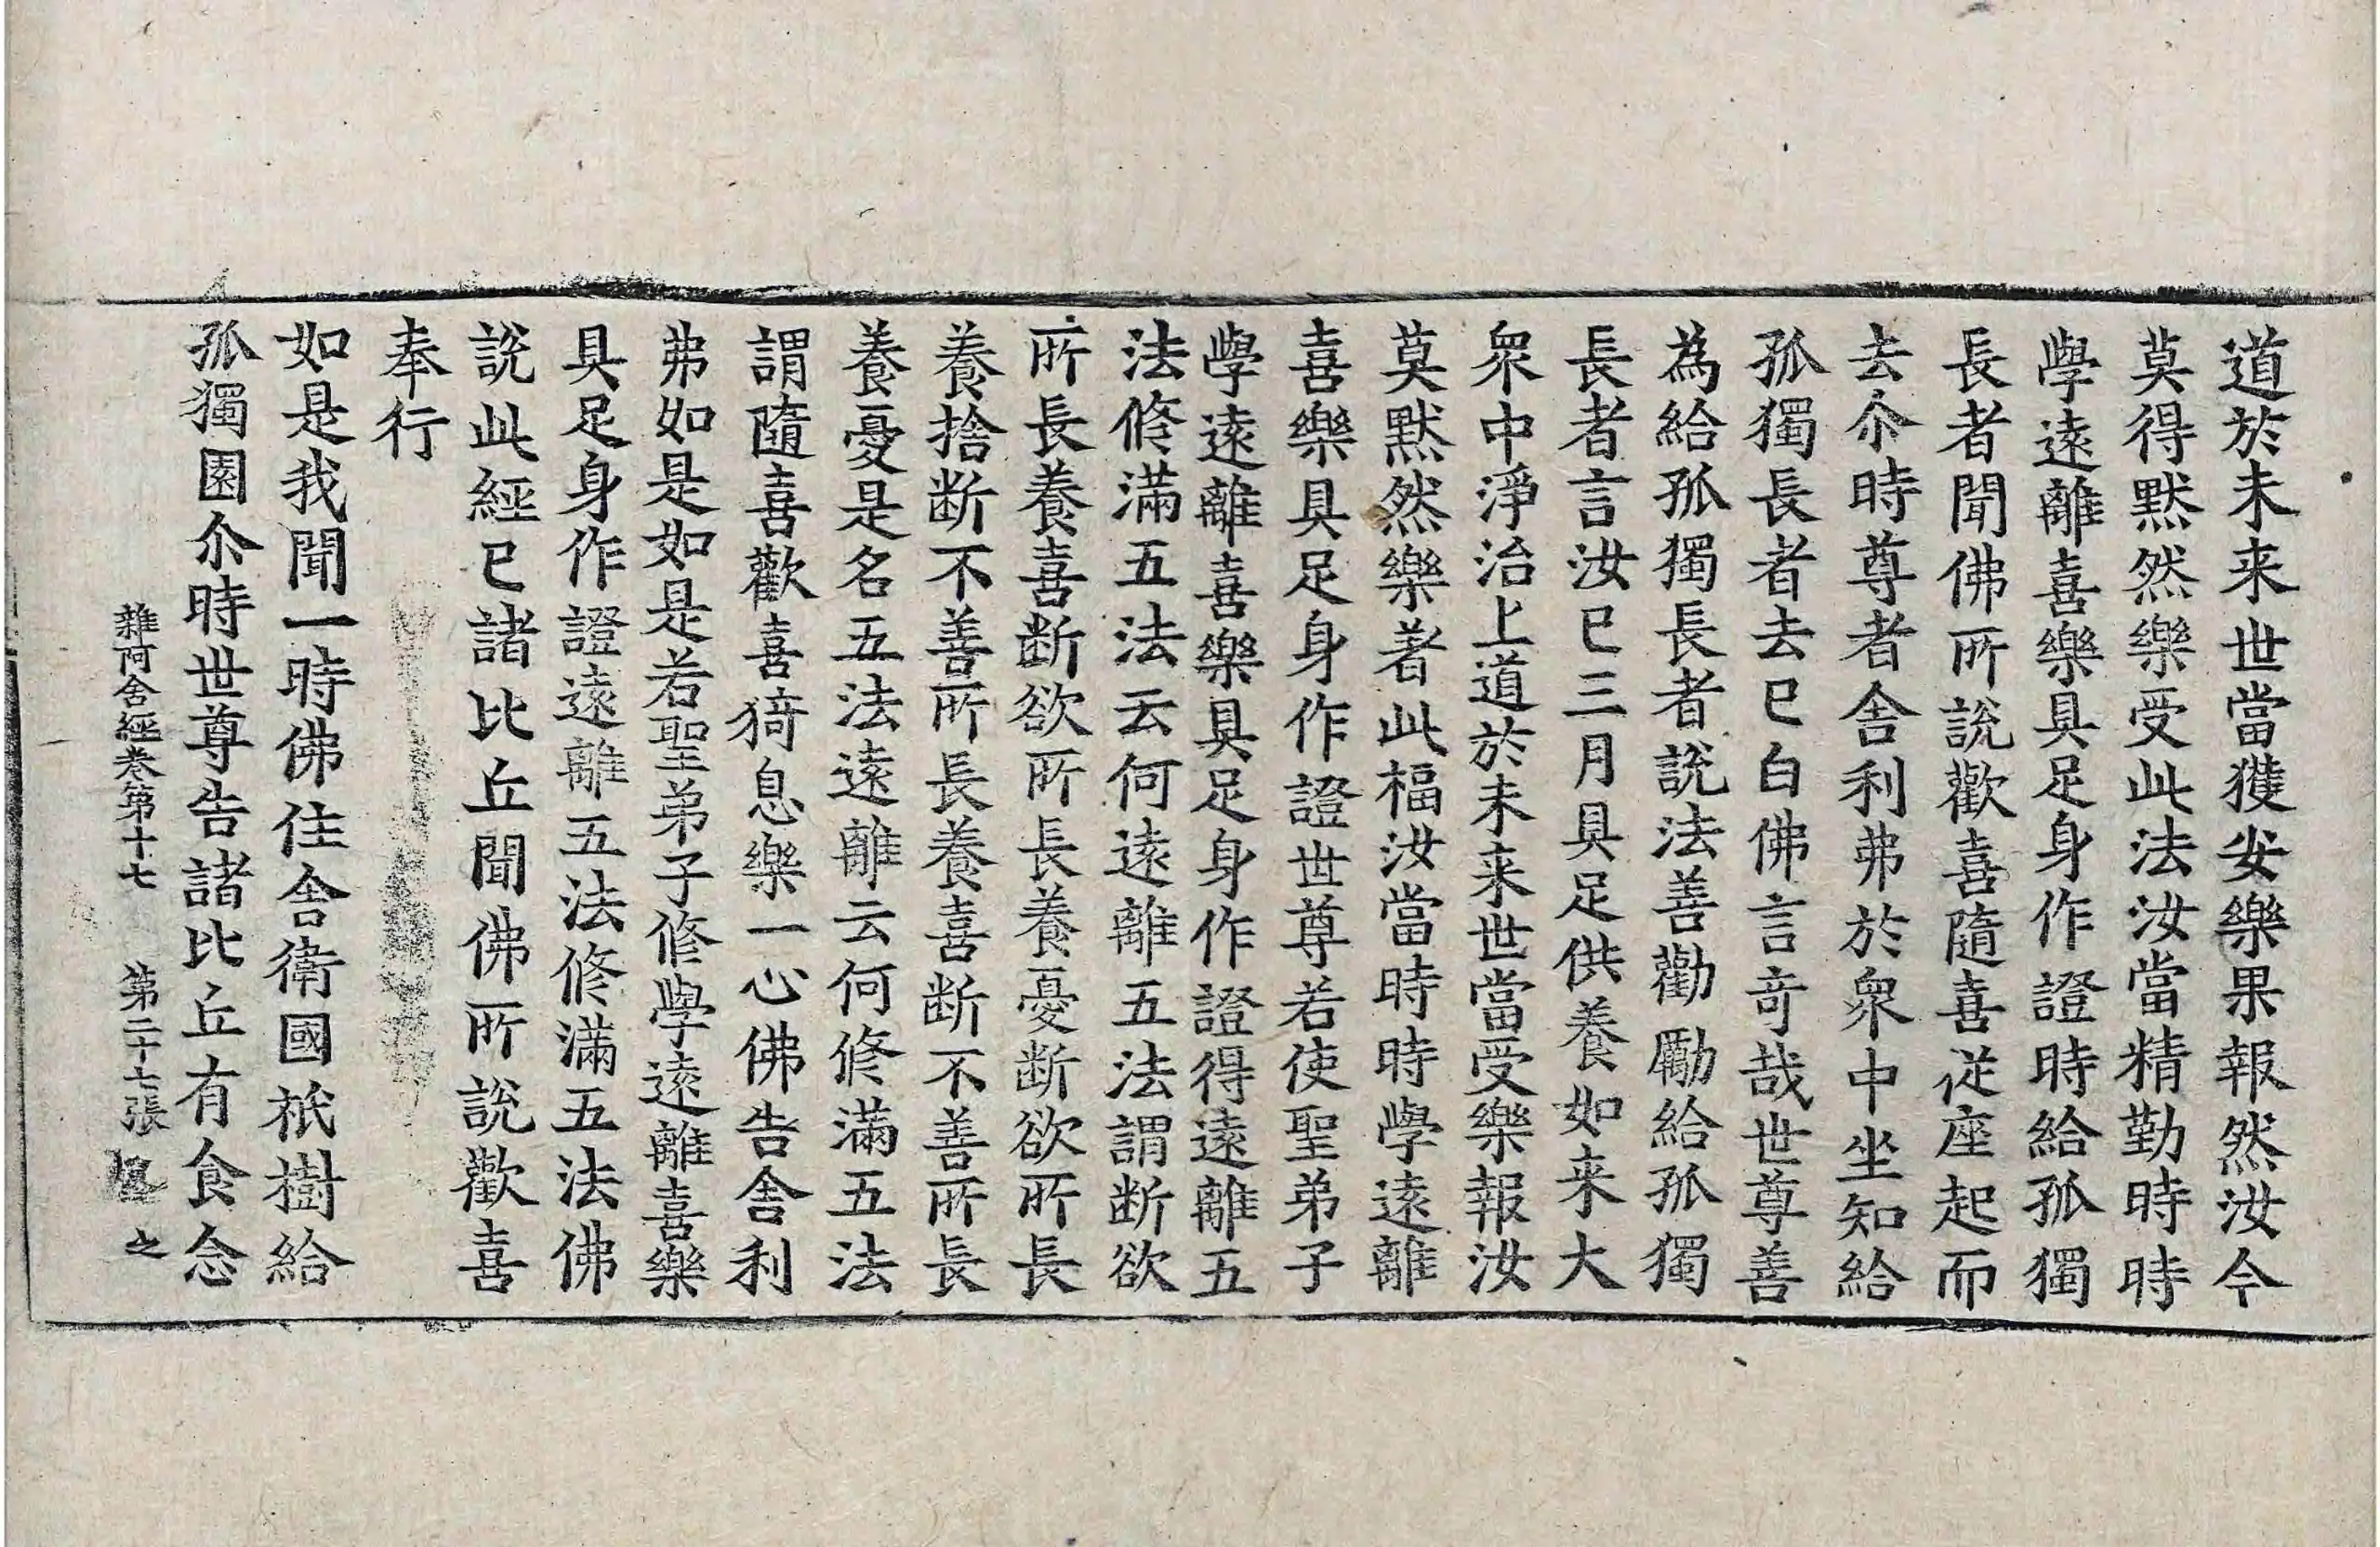 道於未来世當獲安樂果報然汝今
莫得默然樂受此法汝當精勤時時
學遠離喜樂具足身作證時給孤獨
長者聞佛所說歡喜隨喜従座起而
去尒時尊者舎利弗於衆中坐知給
孤獨長者去已白佛言竒哉世尊善
為給孤獨長者說法善勸勵給孤獨
長者言汝已三月具足供養如来大
衆中淨治上道於未来世當受樂報汝
莫黙然樂著此福汝當時時學遠離
喜樂具足身作證世尊若使聖弟子
學遠離喜樂具足身作證得遠離五
法修滿五法云何遠離五法謂断欲
所長養喜断欲所長養憂断欲所長
養捨断不善所長養喜断不善所長
養憂是名五法遠離云何修滿五法
謂隨喜歡喜猗息樂一心佛告舎利
弗如是如是若聖弟子修學遠離喜樂
具足身作證遠離五法修滿五法佛
說此經已諸比丘聞佛所說歡喜
奉行
如是我聞一時佛住舎衛國祇樹給
孤獨園尒時世尊告諸比丘有食念
雜阿含經卷第十七 第二十七張 之